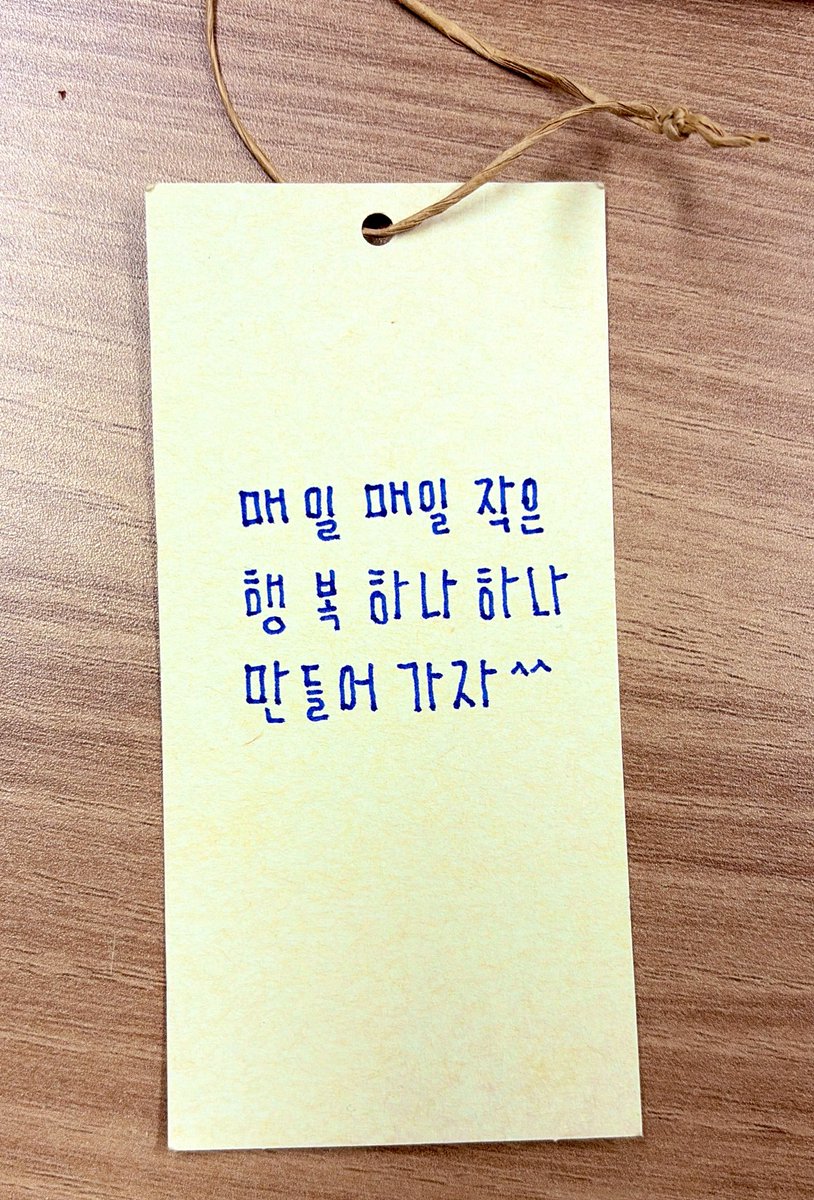 매일 매일 작은
행복 하나하나
만들어 가자^^